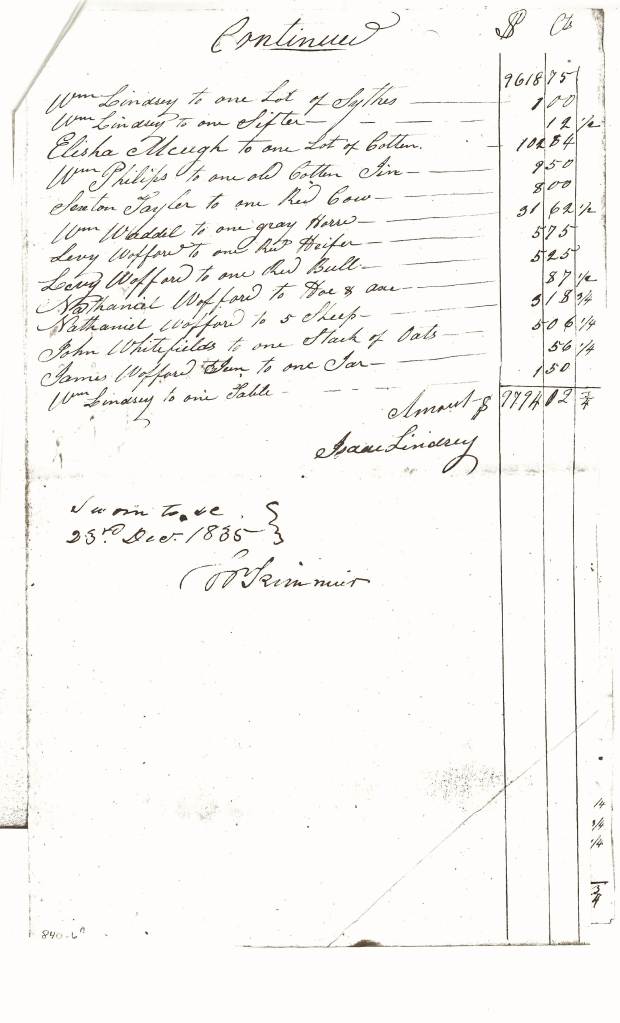 Continued $ Cts
9618 75
Wm Lindsey to one Lot of Sythes 1 00
Wm Lindsey to one Sifter 12 1/2
Elisha Mcugh to one Lot of Cotten. 102 84
Wm Philips to one old Cotten Gin 9 50
Sexton Tayler to one Red Cow 8 00
Wm Waddel to one gray Horse 31 62 1/2
Levy Wofford to one Red Heifer 5 75
Levy Wofford to one Red Bull 5 25
Nathaniel Wofford to Hoe & axe 87 1/2
Nathaniel Wofford to 5 Sheep 3 18 3/4
John Whitefields to one Stack of Oats 5 06 1/4
James Wofford Jun to one Jar 56 1/4
Wm Lindsey to one Table 1 50
Amount $ 9794 02 3/4
Isaac Lindsey
Sworn to &c
23rd Dec. 1835
1/4
3/4
1/4
3/4